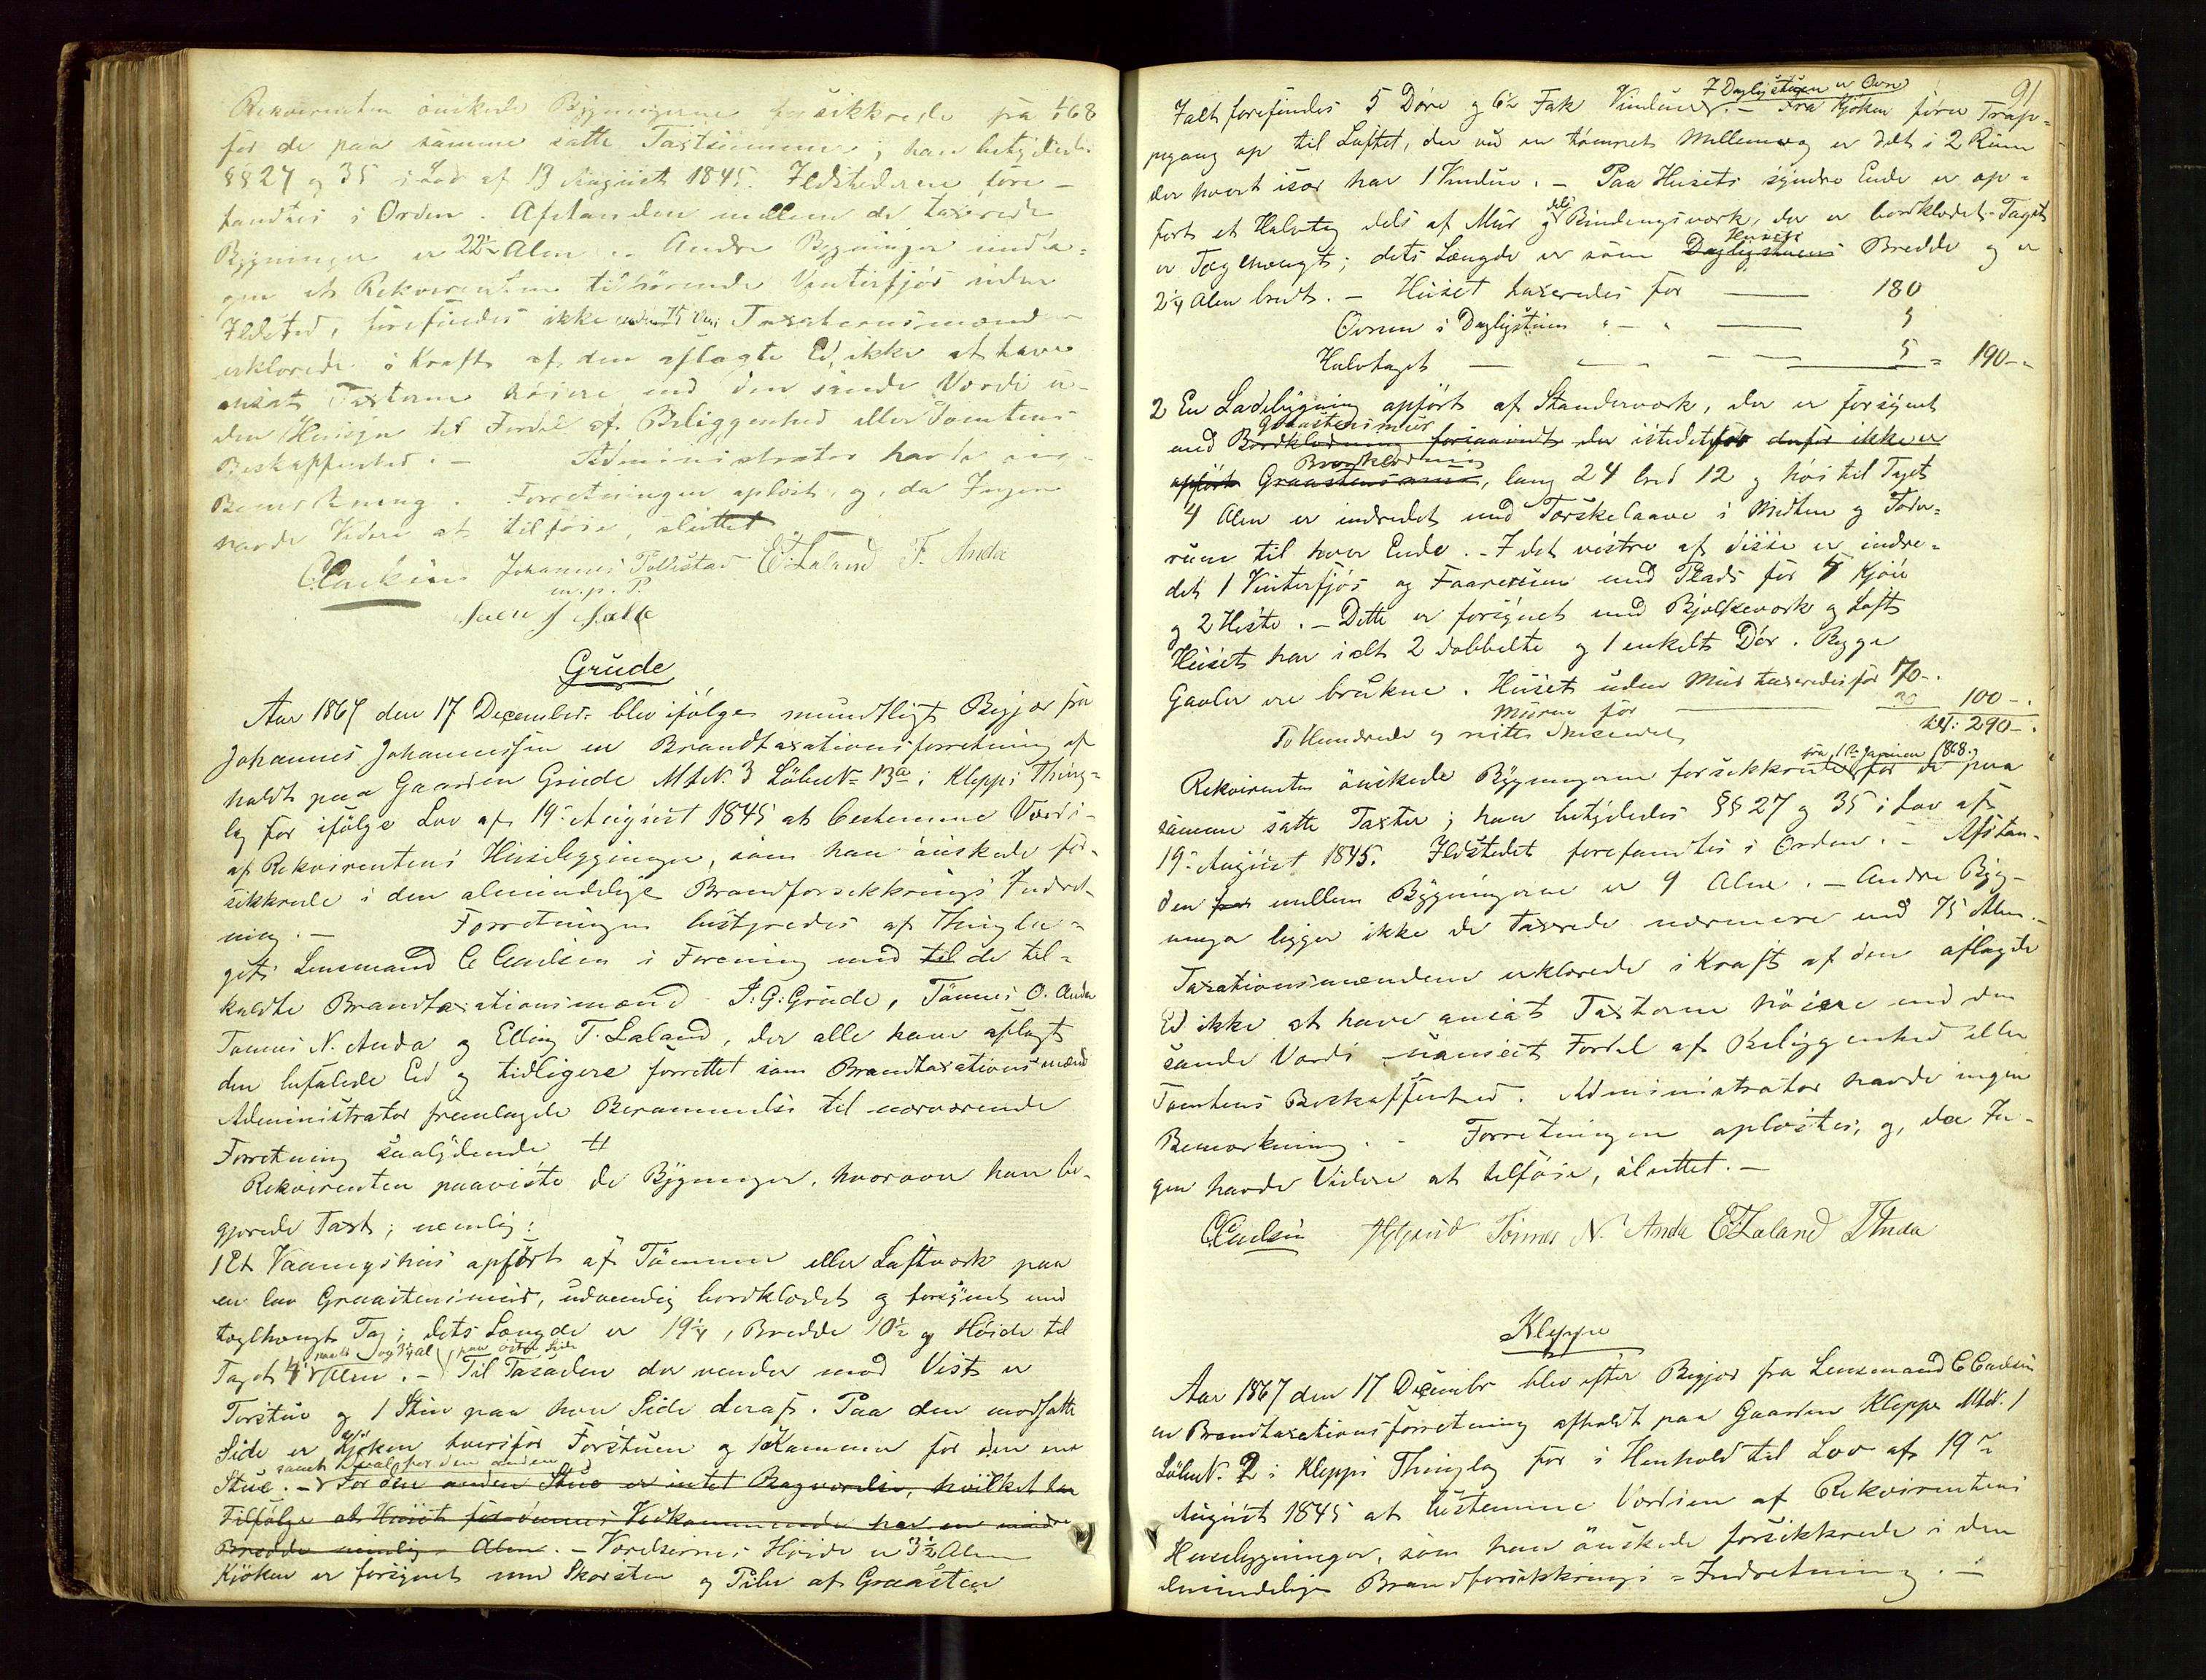 Rekvirenten önskede Bygningerne forsikkrede fra 1/1 68
for de paa samme satte Taxtsummer; han betydedes
§§ 27 og 35 i Lov af 19 August 1845. Ildstederne fore-
fandtes i Orden. Afstanden mellem de taxerede
Bygninger er 22½ Alen. Andre Bygninger undta-
gen et Rekvirenten tilhörende Vinterfjös uden
Ildsted, forefindes ikke Taxationsmænd
erklærede i Kraft af den aflagte Ed, ikke at have
ansat Taxterne höiere end den sande Værdi u-
den Hensyn til Fordel af Beliggenhed eller Tomtens
Beskaffenhed. - Administrator havde in-
Bemærkning. Forretningen oplæst, og, da Ingen
havde Videre at tilföie, sluttet
CCarlsen Johannes Tollestad E. Laland T. Anda
m. p. P.
Grude
Aar 1867 den 17 December blev ifölge mundtligt Begjær fra
Johannes Johannessen en Brandtaxationsforretning af
holdt paa Gaarden Grude Mt N. 3 LöbeN 13a i Klepps Thing-
lag for ifölge Lov af 19. August 1845 at bestemme Værdi-
af Rekvirentens Huusbygninger, som han önskede for-
sikkrede i den almindelige Brandforsikkrings Indret-
ning. - Forretningen bestyredes af Thingla-
gets Lensmand C Carlsen i Forening med til de til-
kaldte Brandtaxationsmænd J. G. Grude, Tönnes O. Anda
Tönnes N. Anda og Elling T. Laland, der alle have aflagt
den befalede Ed og tidligere forrettet som Brandtaxationsmænd
Administrator fremlagde Berammelse til nærværende
Forretning saalydende #
Rekvirenten paaviste de Bygninger, hvorover han be-
gjærede Taxt; nemlig:
1 Et Vaaningshus opfört af Tömmer eller Laftværk paa
en lav Graastensmur, udvendig bordklædet og forsynet med
taglhængt Tag; dets Længde er 19¼, Bredde 10½ og Höide til
og 3¼ Al paa östre Side
Taget 4 Alen. - Til Facaden der vender mod Vest er
Forstue og 1 Stue paa hver Side deraf. Paa den modsatte
Side er Kjöken tversfor Forstuen og 1 Kammer for den ene
samt for den anden
Stue. - For den anden Stue er intet Bagværelse, hvilket har
Tilfölge at Huset for dennes Vedkommende har en mindre
Bredde nemlig Alen. - Værelsernes Höide er 3½ Alen
Kjöken er forsynet med Skorsten og Piber af Graasten
91
I Dagligstuen er Ovn
Ialt forefindes 5 Döre og 6½ Fak Vinduer. - Fra Kjöken förer Trap-
pegang op til Loftet, der ved en tömret Mellemvæg er delt i 2 Rum
der hvert især har 1 Vindue. - Paa Husets söndre Ende er op-
dels
fört et Halvtag dels af Mur og Bindingsværk, der er bordklædet. Taget
Husets
er Taglhængt; dets Længde er som Dagligstuens Bredde og er
2¼ Alen bredt. - Huset taxeredes for 180
Ovnen i Dagligstuen " - " 5
Halvtaget 5 = 190 -
2 En Ladebygning opfört af Standerværk, der er forsynet
Graastensmur
med Bordklædning forsaavidt der istedetfor derfor ikke er
Bordklædning
opfört Graastensmur, lang 24 bred 12 og höi til Taget
4 Alen er indredet med Tærskelaave i Midten og Foder-
rum til hver Ende. - I det vestre af disse er indre-
det 1 Vinterfjös og Faarerum med Plads for 4 Kjör
og 2 Heste. - Dette er forsynet med Bjelkeværk og Loft
Huset har ialt 2 dobbelte og 1 enkelt Dör. Begge
Gavler ere brukne. Huset uden Mur taxeredes for 70 -.
Muren for 30 100 -.
To Hundrede og nitti Specidaler, tilS: 290 -.
fra 1ste Januar 1868
Rekvirenten önskede Bygningerne forsikkrede for de paa
samme satte Taxter; han betydedes §§ 27 og 35 i Lov af
19. August 1845. Ildstedet forefandtes i Orden. - Afstan-
den fra mellem Bygningerne er 9 Alne. - Andre Byg-
ninger ligger ikke de taxerede nærmere end 75 Alen. -
Taxationsmændene erklærede i Kraft af den aflagte
Ed ikke at have ansat Taxterne höiere end den
sande Værdi uanseet Fordel af Beliggenhed eller
Tomtens Beskaffenhed. Administrator havde ingen
Bemærkning. - Forretningen oplæstes, og, da In-
gen havde Videre at tilföie, sluttet. -
CCarlsen JGGrude Tönnes N. Anda E Laland T Anda
Kleppe
Aar 1867 den 17 December blev efter Begjær fra Lensmand C Carlsen
en Brandtaxationsforretning afholdt paa Gaarden Kleppe Mt N. 1
LöbeN. 2 i Klepps Thinglag for i Henhold til Lov af 19de
August 1845 at bestemme Værdien af Rekvirentens
Huusbygninger, som han önskede forsikkrede i den
almindelige Brandforsikkrings-Indretning. -